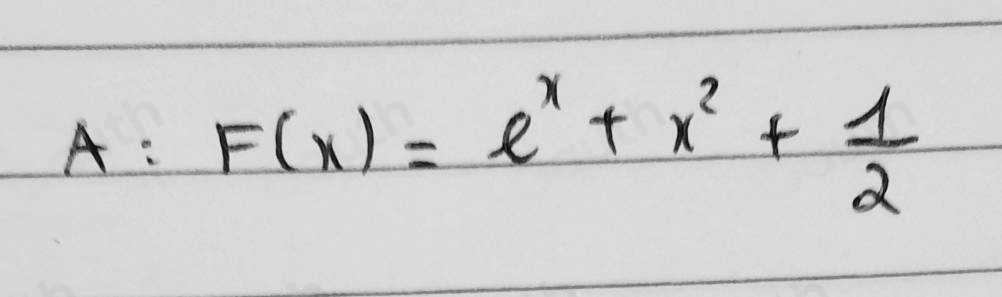 A: F(x) = e^x + x^2 + 1/2